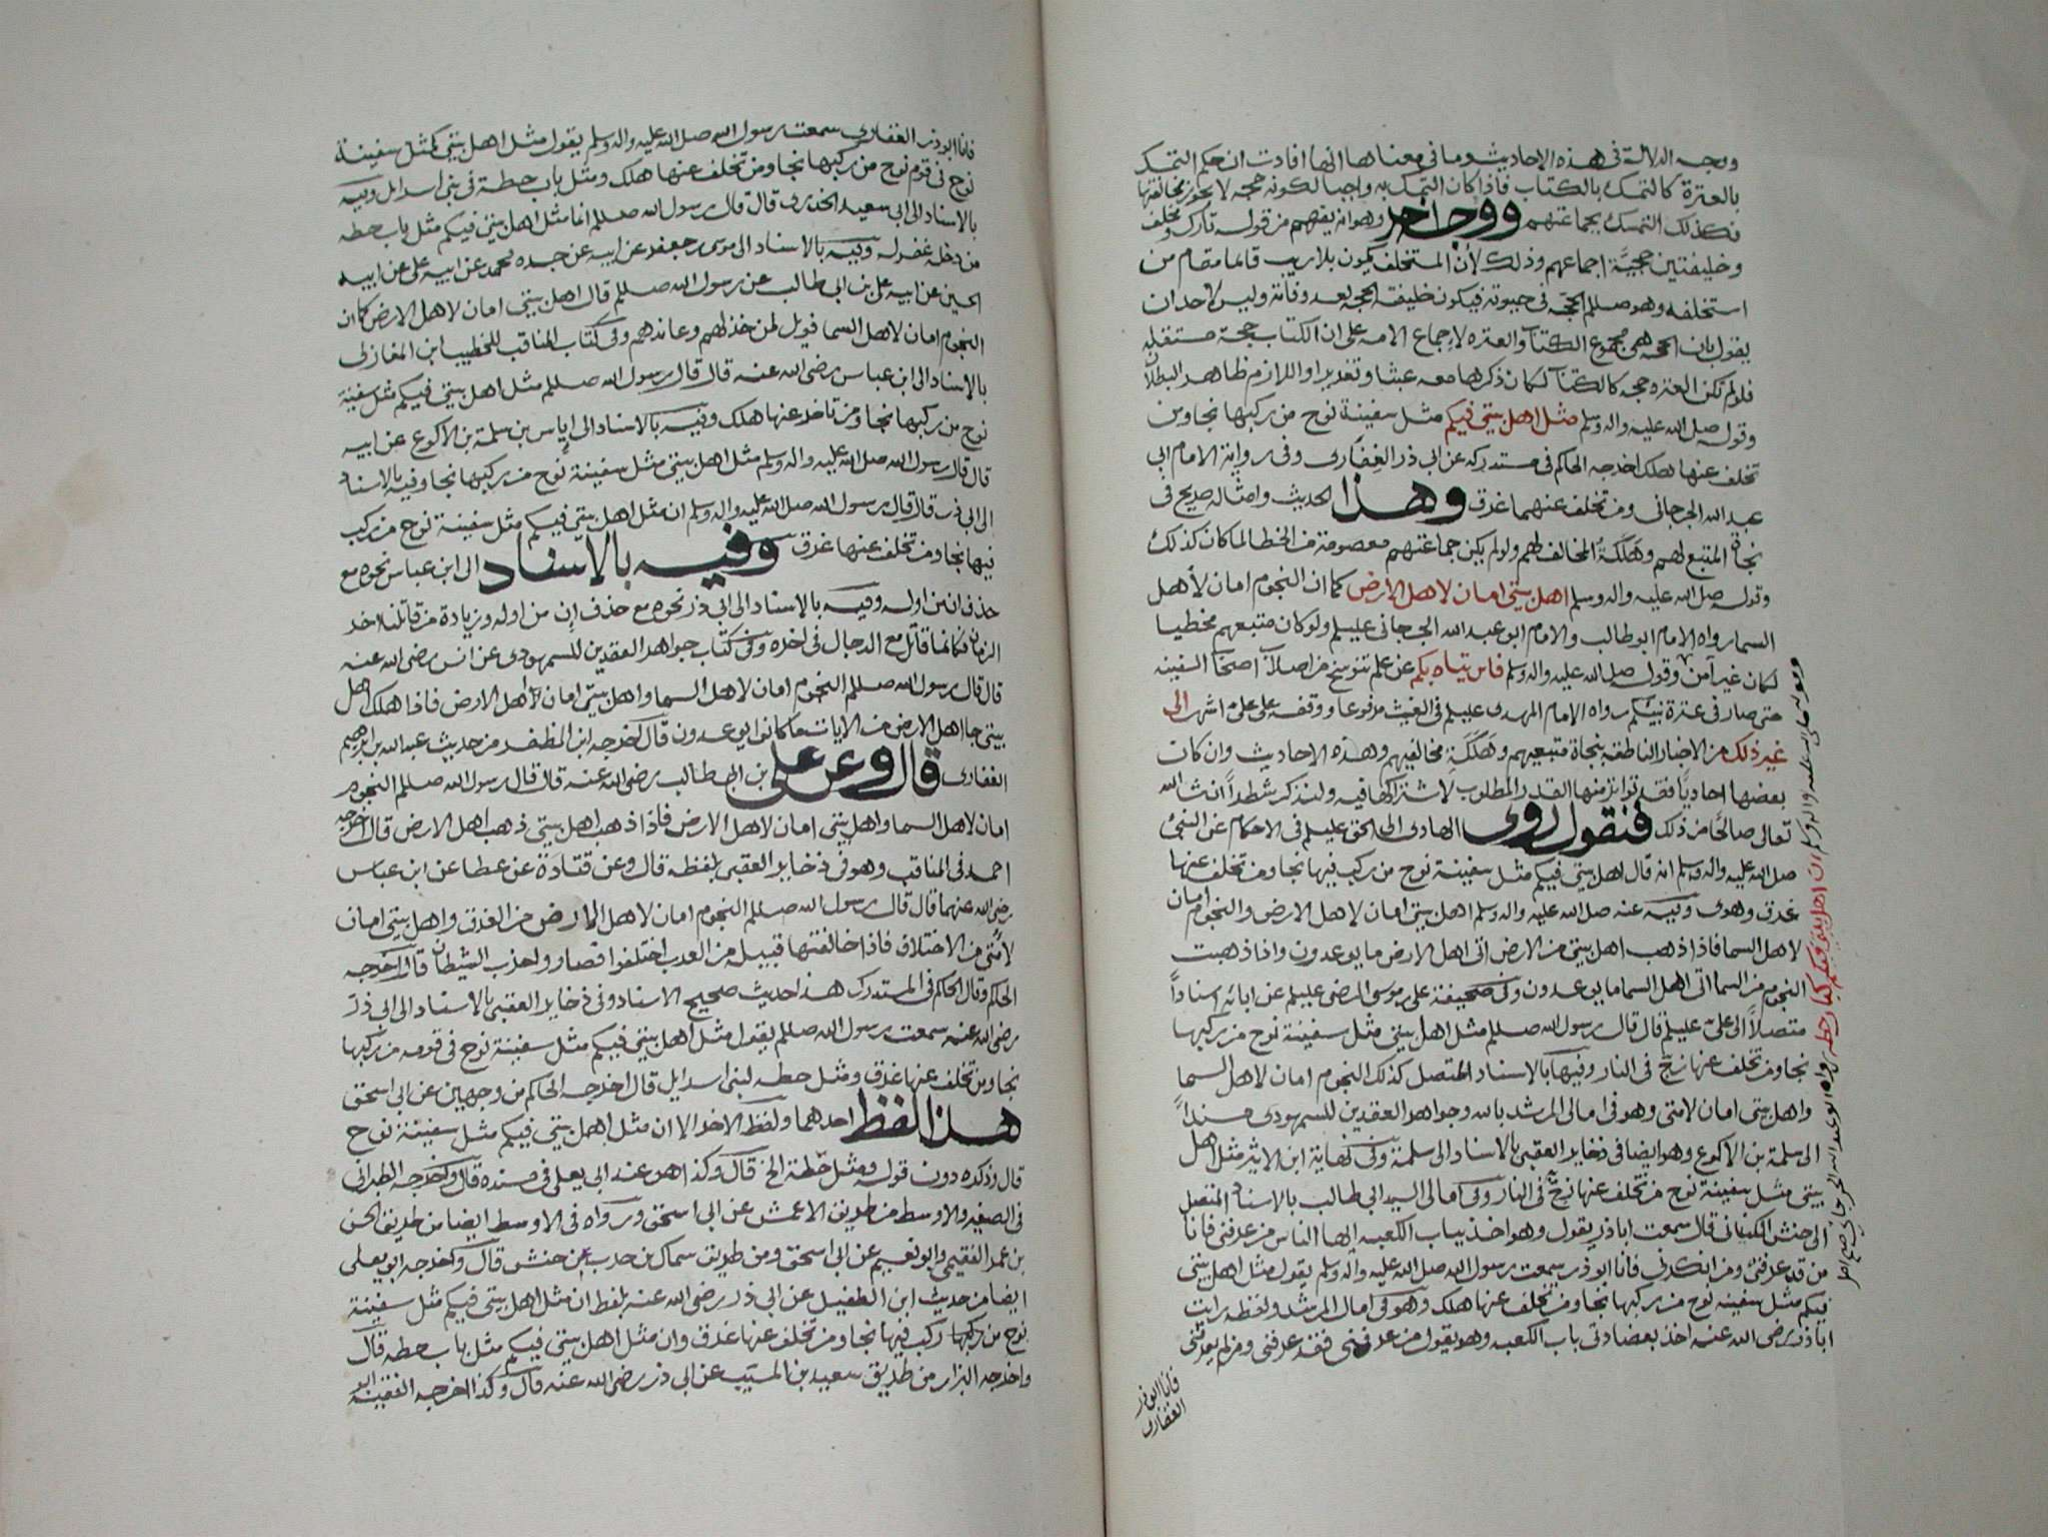 ووجه الدلالة فى هذه الاحاديث وما فى معناها انها افادت ان حكم التمسك
بالعترة كالتمسك بالكتاب فاذا كان التمسك به واجبا لكونه حجه لا يجوز مخالفتها
فكذلك التمسك بجماعتهم ووجه اخر وهو انه يفهم من قوله تارك ومخلف
وخليفتين حجية اجماعهم وذلك لأن المستخلف يكون بلا ريب قائما مقام من
استخلفه وهو صللم الحجه فى حيوته فيكون خليفته الحجه بعد وفاته وليس لاحد ان
يقول بان الحجه هى مجموع الكتاب والعتره لإجماع الامه على ان الكتاب حجة مستقله
فلو لم تكن العتره حجه كالكتاب لكان ذكرها معه عبثا وتغريرا واللازم ظاهر البطلان
وقوله صلى الله عليه واله وسلم مثل اهل بيتى فيكم مثل سفينة نوح من ركبها نجا ومن
تخلف عنها هلك اخرجه الحاكم فى مستدركه عن ابى ذر الغفارى وفى رواية الامام ابى
عبد الله الجرجانى ومن تخلف عنهما غرق وهذا الحديث وامثاله صريح فى
نجاة المتبع لهم وهَلَكَةُ المخالف لهم ولو لم يكن جماعتهم معصومة من الخطا لما كان كذلك
وقوله صلى الله عليه واله وسلم اهل بيتى امان لاهل الارض كما ان النجوم امان لأهل
السما رواه الامام ابو طالب والامام ابو عبد الله الجرجانى عليلم ولو كان متبعهم مخطيا
لكان غير آمن وقوله صلى الله عليه واله وسلم فاين يتاه بكم عن علم تنوسخ من اصلاب اصحاب السفينه
حتى صار فى عترة نبيكم رواه الامام المهدى عليلم فى الغيث مرفوعا ووقفه على على م اشهر الى
غير ذلك من الاخبار الناطقه بنجاة متبعيهم وهَلَكَةِ مخالفيهم وهذه الاحاديث وان كان
بعضها احاديًّا فقد تواتر منها القدر المطلوب لاشتراكها فيه ولنذكر شطراً انشا الله
تعالى صالحًا من ذلك فنقول روى الهادى الى الحق عليلم فى الاحكام عن النبى
صلى الله عليه واله وسلم انه قال اهل بيتى فيكم مثل سفينة نوح من ركب فيها نجا ومن تخلف عنها
غرق وهوى وفيه عنه صلى الله عليه واله وسلم اهل بيتى امان لاهل الارض والنجوم امان
لاهل السما فاذا ذهب اهل بيتى من الارض اتى اهل الارض ما يوعدون واذا ذهبت
النجوم من السما اتى اهل السما ما يوعدون وفى صحيفة على بن موسى الرضى عليلم عن ابائه اسناداً
متصلاً الى على عليلم قال قال رسول الله صللم مثل اهل بيتى مثل سفينة نوح من ركبها
نجا ومن تخلف عنها زخّ فى النار وفيها بالاسناد المتصل كذلك النجوم امان لاهل السما
واهل بيتى امان لامتى وهو فى امالى المرشد بالله وجواهر العقدين للسمهودى مسنداً
الى سلمة بن الاكوع وهو ايضا فى ذخاير العقبى بالاسناد الى سلمة وفى نهاية ابن الاثير مثل اهل
بيتى مثل سفينة نوح من تخلف عنها زخّ فى النار وفى امالى السيد ابى طالب بالاسناد المتصل
الى حنش الكنانى قال سمعت اباذر يقول وهو اخذ بباب الكعبه ايها الناس من عرفنى فانا
من قد عرفنى ومن انكرنى فانا ابو ذر سمعت رسول الله صلى الله عليه واله وسلم يقول مثل اهل بيتى
فيكم مثل سفينه نوح من ركبها نجا ومن تخلف عنها هلك وهو فى امالى المرشد ولفظه رايت
اباذر رضى الله عنه اخذ بعضادتى باب الكعبه وهو يقول من عرفنى فقد عرفنى ومن لم يعرفنى
فانا ابو ذر
الغفارى
وقوله صلى الله عليه واله وسلم ان اهل بيتى فيكم كباب حطه رواه ابو عبد الله الجرجانى صح اصل
فانا ابو ذر الغفارى سمعت رسول الله صلى الله عليه واله وسلم يقول مثل اهل بيتى كمثل سفينة
نوح فى قوم نوح من ركبها نجا ومن تخلف عنها هلك ومثل باب حطة فى بنى اسرايل وفيه
بالاسناد الى ابى سعيد الخدرى قال قال رسول الله صللم انما مثل اهل بيتى فيكم مثل باب حطه
من دخله غفر له وفيه بالاسناد الى موسى بن جعفر عن ابيه عن جده محمد عن ابيه على عن ابيه
الحسين عن ابيه على بن ابى طالب عن رسول الله صللم قال اهل بيتى امان لاهل الارض كما ان
النجوم امان لاهل السما فويل لمن خذلهم وعاندهم وفى كتاب المناقب للخطيب ابن المغازلى
بالاسناد الى ابن عباس رضى الله عنه قال قال رسول الله صللم مثل اهل بيتى فيكم مثل سفينة
نوح من ركبها نجا ومن تاخر عنها هلك وفيه بالاسناد الى إياس بن سلمة بن الاكوع عن ابيه
قال قال رسول الله صلى الله عليه واله وسلم مثل اهل بيتى مثل سفينة نوح من ركبها نجا وفيه بالاسناد
الى ابى ذر قال قال رسول الله صلى الله عليه واله وسلم ان مثل اهل بيتى فيكم مثل سفينة نوح من ركب
فيها نجا ومن تخلف عنها غرق وفيه بالاسناد الى ابن عباس نحوه مع
حذف ان من اوله وفيه بالاسناد الى ابى ذر نحوه مع حذف إن من اوله وزيادة من قاتلنا اخر
الزمان فكانما قاتل مع الدجال فى اخره وفى كتاب جواهر العقدين للسمهودى عن انس رضى الله عنه
قال قال رسول الله صللم النجوم امان لاهل السما واهل بيتى امان لأهل الارض فاذا هلك اهل
بيتى جا اهل الارض من الايات ما كانوا يوعدون قال اخرجه ابن المظفر من حديث عبد الله بن ابراهيم
الغفارى قال وعن على بن ابى طالب رضى الله عنه قال قال رسول الله صللم النجوم
امان لاهل السما واهل بيتى امان لاهل الارض فاذا ذهب اهل بيتى ذهب اهل الارض قال اخرجه
احمد فى المناقب وهو فى ذخاير العقبى بلفظه قال وعن قتادة عن عطا عن ابن عباس
رضى الله عنهما قال قال رسول الله صللم النجوم امان لاهل الارض من الغرق واهل بيتى امان
لامتى من الاختلاف فاذا خالفتها قبيل من العرب اختلفوا فصاروا حزب الشيطان قال اخرجه
الحاكم وقال الحاكم فى المستدرك هذا حديث صحيح الاسناد وفى ذخاير العقبى بالاسناد الى ابى ذر
رضى الله عنه سمعت رسول الله صللم يقول مثل اهل بيتى فيكم مثل سفينة نوح فى قومه من ركبها
نجا ومن تخلف عنها غرق ومثل حطه لبنى اسرايل قال اخرجه الحاكم من وجهين عن ابى اسحق
هذا لفظ احدهما ولفظ الاخر الا ان مثل اهل بيتى فيكم مثل سفينة نوح
قال وذكره دون قوله ومثل حطة الخ قال وكذا هو عند ابى يعلى فى مسنده قال واخرجه الطبرانى
فى الصغير والاوسط من طريق الاعمش عن ابى اسحق ورواه فى الاوسط ايضا من طريق الحسن
بن عمرو الفقيمى وابو نعيم عن ابى اسحق ومن طريق سماك بن حرب عن حنش قال واخرجه ابو يعلى
ايضا من حديث ابن الطفيل عن ابى ذر رضى الله عنه بلفظ ان مثل اهل بيتى فيكم مثل سفينة
نوح من ركب فيها نجا ومن تخلف عنها غرق وان مثل اهل بيتى فيكم مثل باب حطه قال
واخرجه البزار من طريق سعيد بن المسيب عن ابى ذر رضى الله عنه قال وكذا اخرجه الفقيه ابو